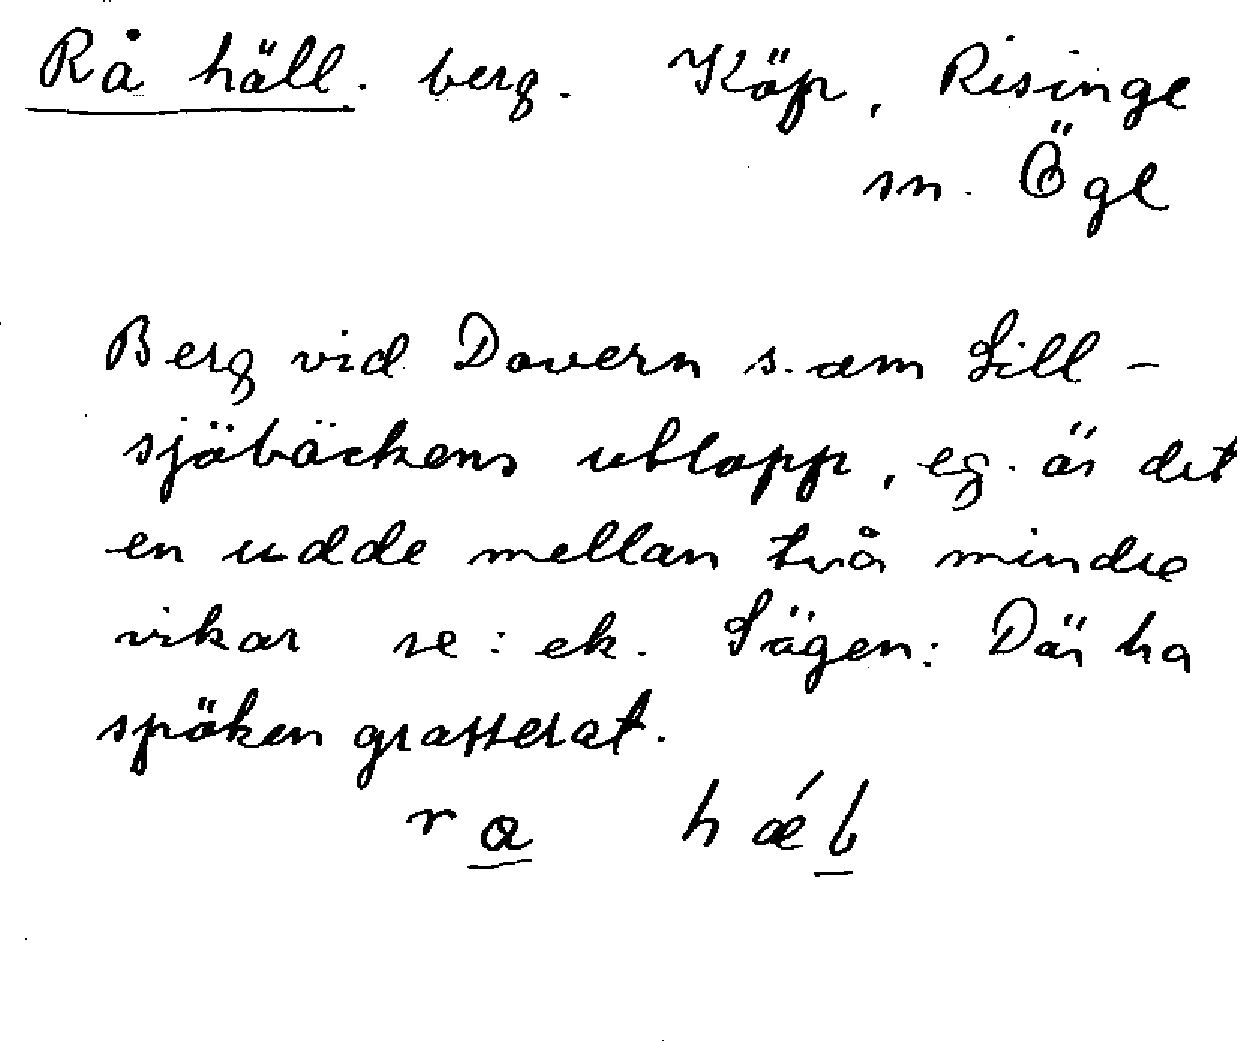 Rå häll. berg. Köp, Risinge
sn. Ögl
Berg vid Dovern s. om Lill-
sjöbäckens utlopp, eg. är det
en udde mellan två mindre
vikar se: ek. Sägen: Där ha
spöken grasserat.